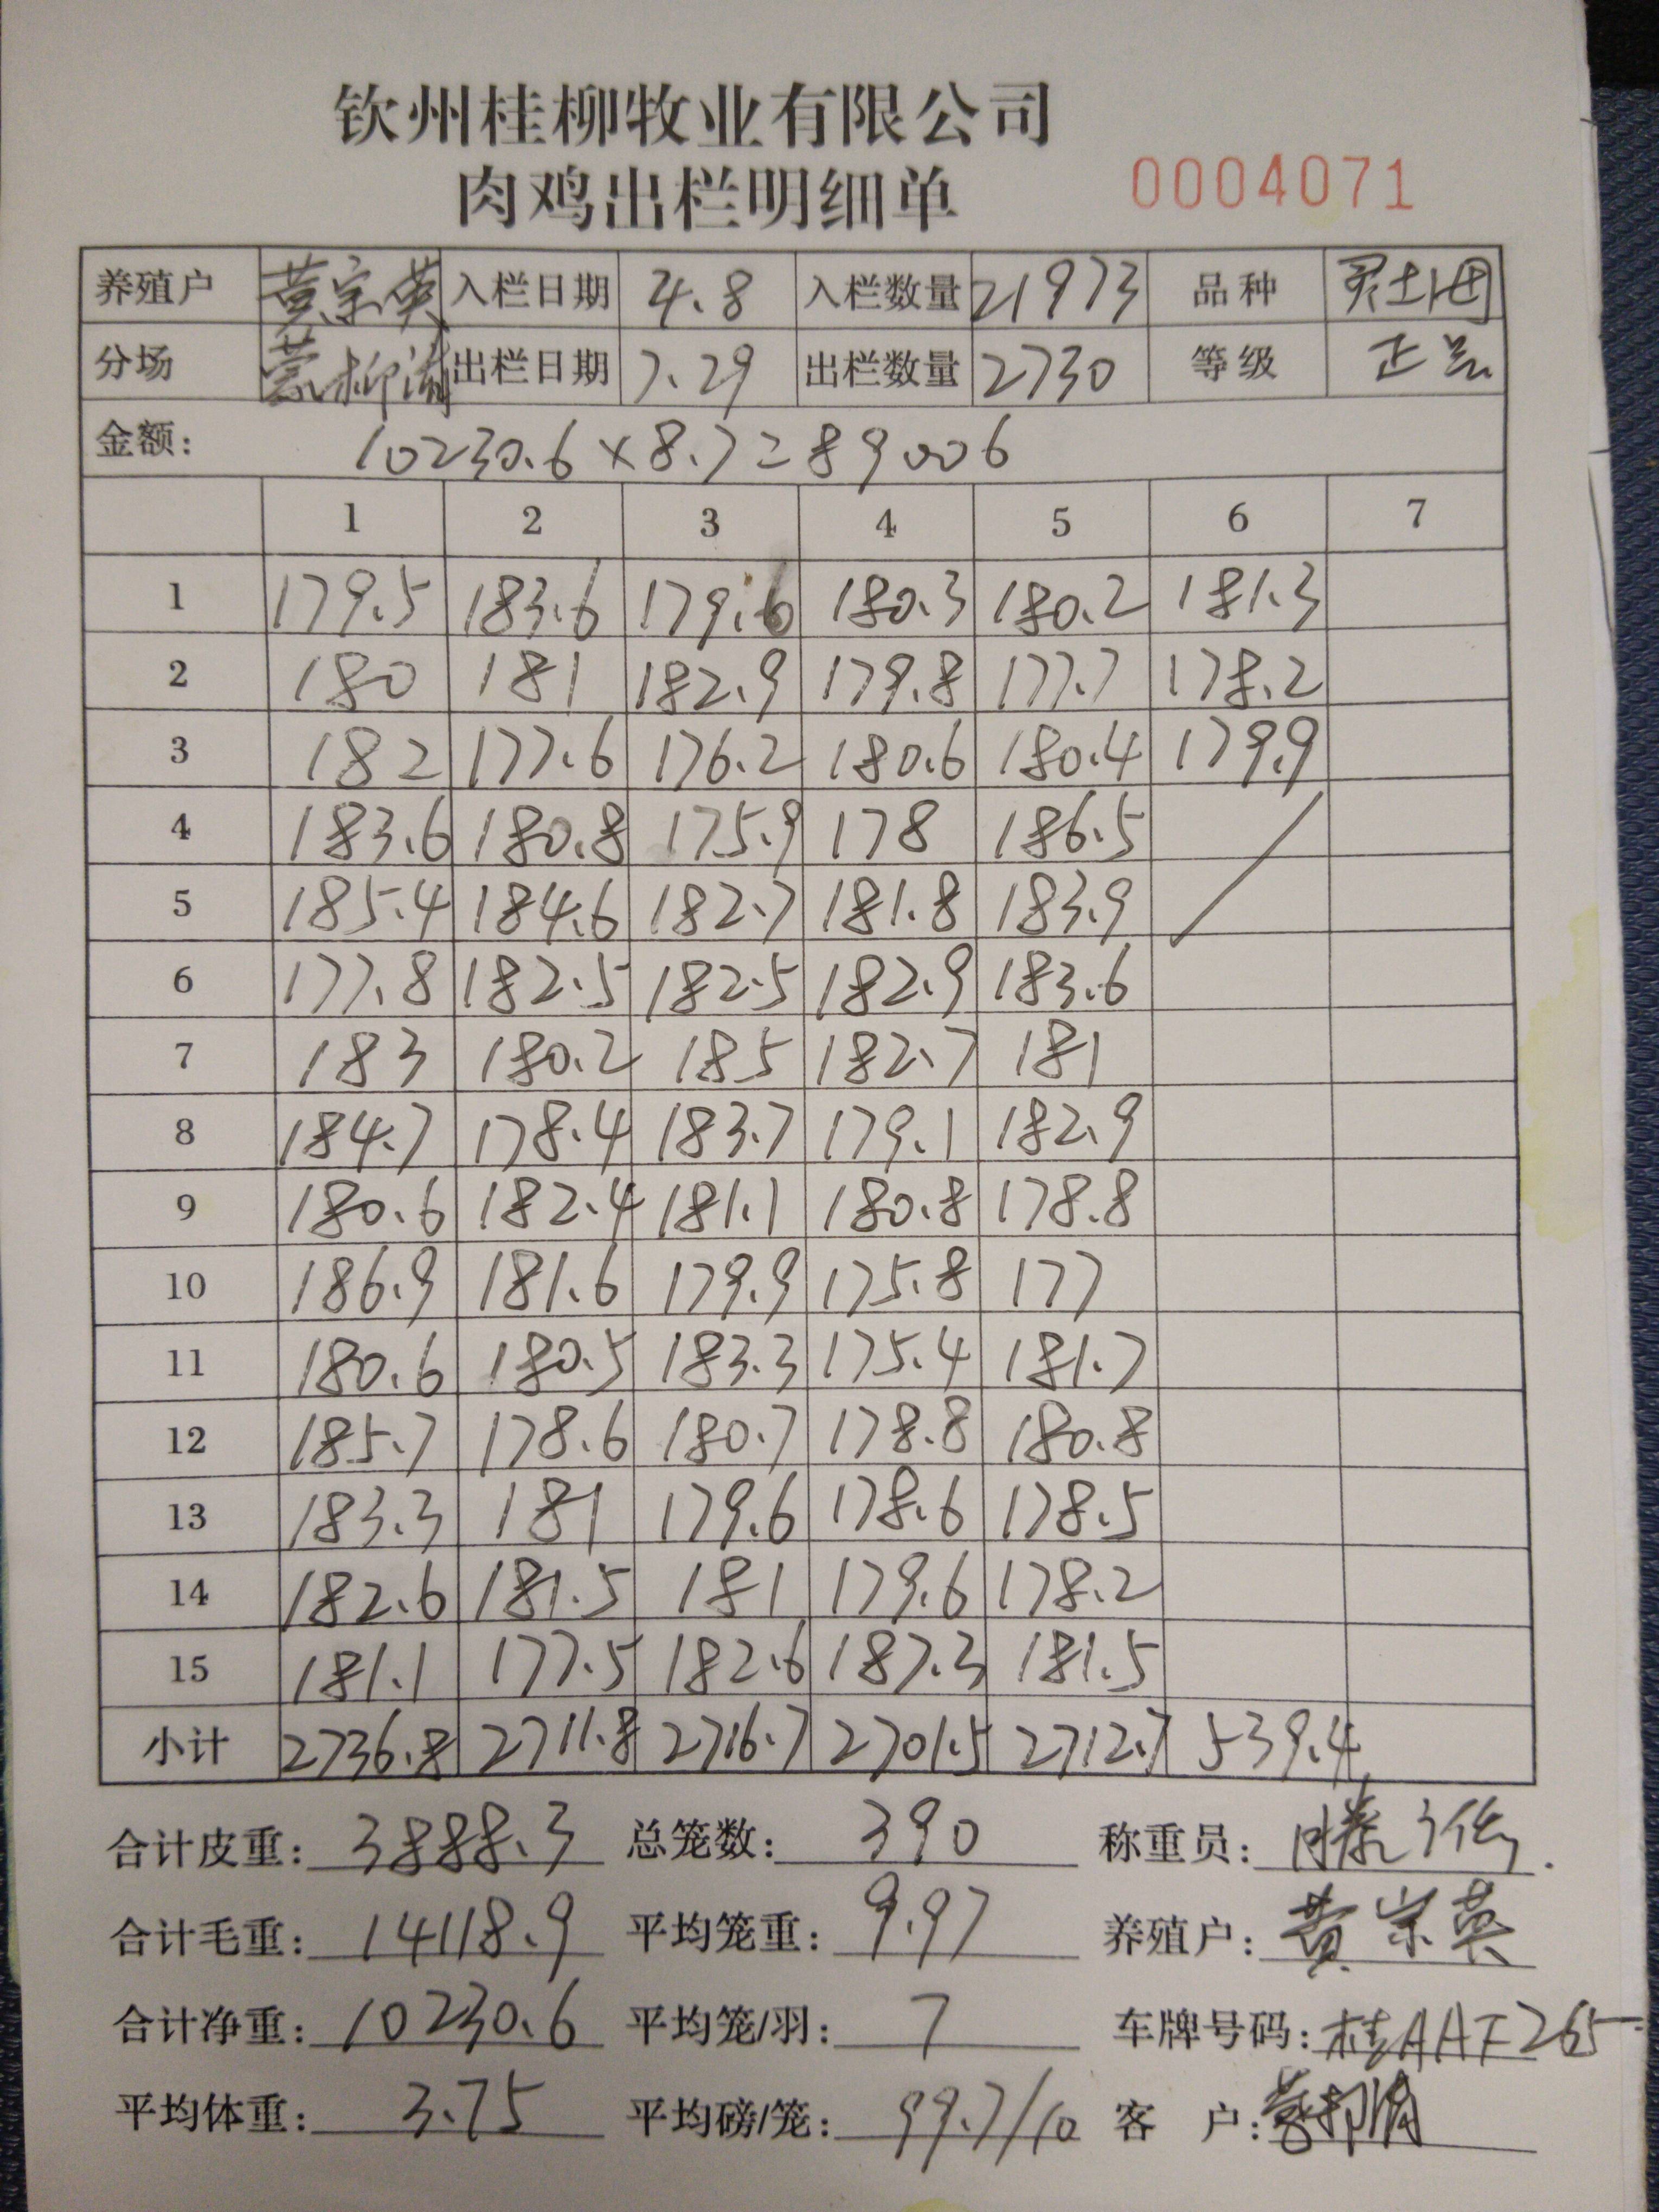 钦州桂柳牧业有限公司
肉鸡出栏明细单 0004071
养殖户 黄宗英 入栏日期 4.8 入栏数量 21973 品种
分场 出栏日期 7.29 出栏数量 2730 等级 正品
金额: 10230.6×8.7=89006
1 2 3 4 5 6 7
1 179.5 183.6 179.6 180.3 180.2 181.3
2 180 181 182.9 179.8 177.7 178.2
3 182 177.6 176.2 180.6 180.4 179.9
4 183.6 180.8 175.9 178 186.5
5 185.4 184.6 182.7 181.8 183.9
6 177.8 182.5 182.5 182.9 183.6
7 183 180.2 185 182.7 181
8 184.7 178.4 183.7 179.1 182.9
9 180.6 182.4 181.1 180.8 178.8
10 186.9 181.6 179.9 175.8 177
11 180.6 180.5 183.3 175.4 181.7
12 185.7 178.6 180.7 178.8 180.8
13 183.3 181 179.6 178.6 178.5
14 182.6 181.5 181 179.6 178.2
15 181.1 177.5 182.6 187.3 181.5
小计 2736.8 2711.8 2716.7 2701.5 2712.7 539.4
合计皮重: 3888.3 总笼数: 390 称重员:
合计毛重: 14118.9 平均笼重: 9.97 养殖户: 黄宗英
合计净重: 10230.6 平均笼/羽: 7 车牌号码: 桂AAF265
平均体重: 3.75 平均磅/笼: 99.7/10 客 户: